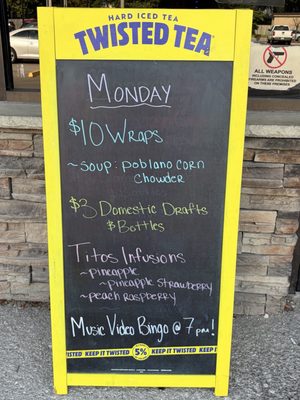 HARD ICED TEA
TWISTED TEA
Monday
$10 Wraps
~Soup: Poblano corn
Chowder
$3 Domestic Drafts
& Bottles
Titos Infusions
~pineapple
~pineapple strawberry
~peach raspberry
Music Video Bingo @ 7pm!
TWISTED KEEP IT TWISTED 5% KEEP IT TWISTED KEEP
ALL WEAPONS
INCLUDING CONCEALED
FIREARMS ARE PROHIBITED
ON THESE PREMISES